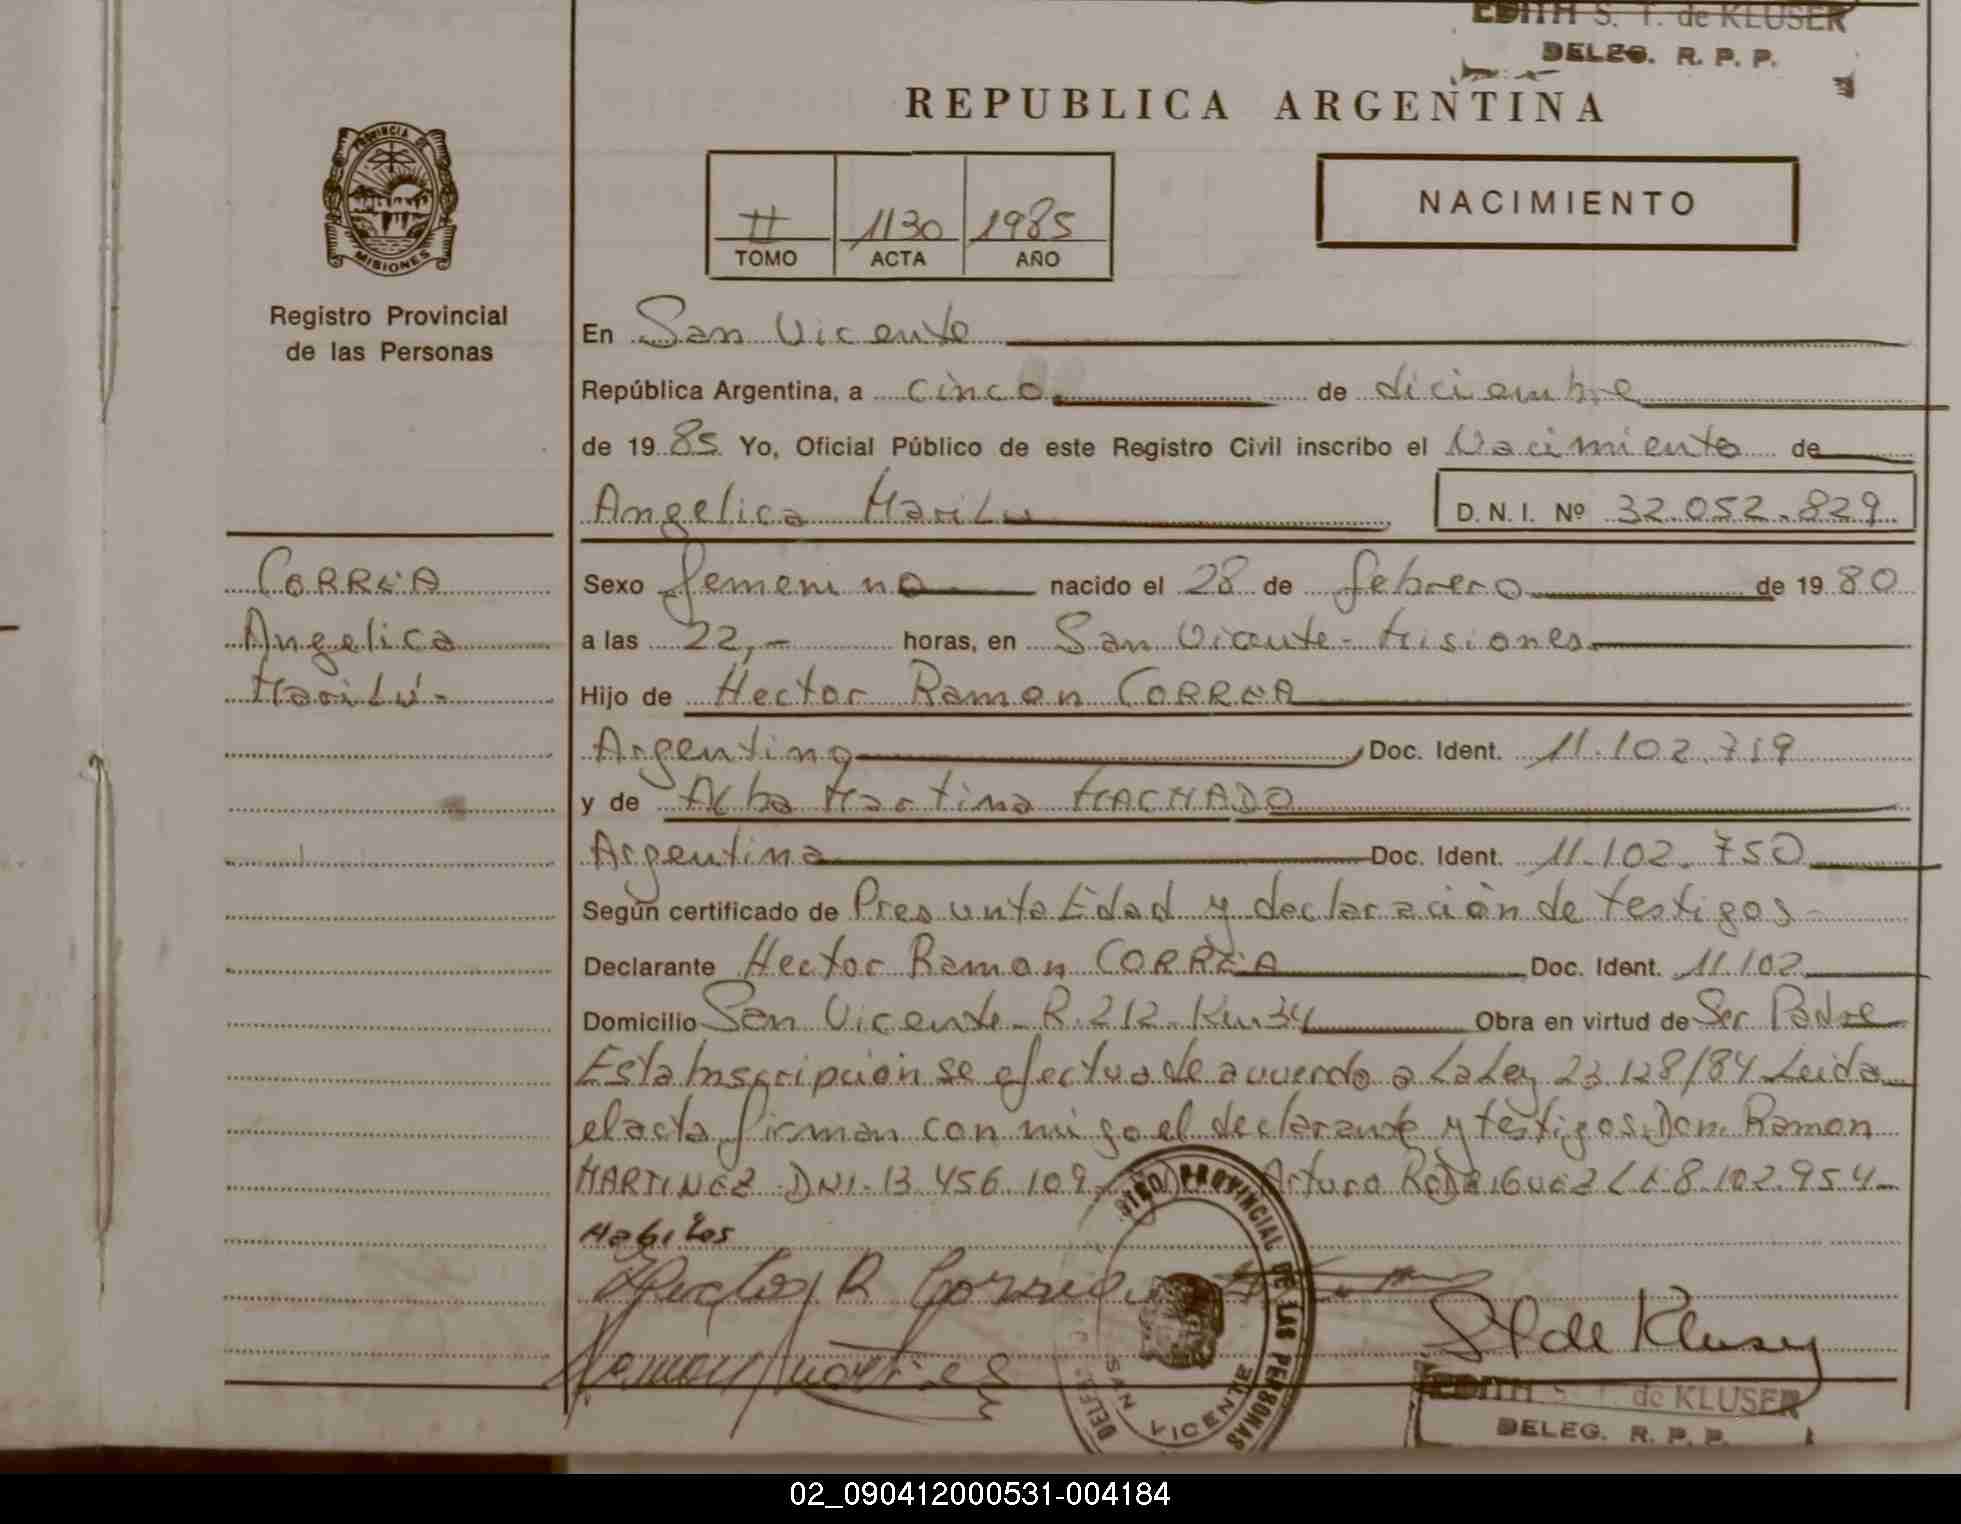 EDITH S. T. de KLUSER
DELEG. R. P. P.
REPUBLICA ARGENTINA
PROVINCIA DE
MISIONES
Registro Provincial
de las Personas
II 1130 1985
TOMO ACTA AÑO
NACIMIENTO
En San Vicente
República Argentina, a cinco de diciembre
de 1985 Yo, Oficial Público de este Registro Civil inscribo el Nacimiento de
Angelica MariLu D. N. I. Nº 32.052.829
CORREA
Angelica
MariLú-
Sexo femenino nacido el 28 de febrero de 1980
a las 22,- horas, en San Vicente-Misiones
Hijo de Hector Ramon CORREA
Argentino Doc. Ident. 11.102.719
y de Alba Martina MACHADO
Argentina Doc. Ident. 11.102.750
Según certificado de Presunta Edad y declaración de testigos-
Declarante Hector Ramon CORREA Doc. Ident. 11.102
Domicilio San Vicente-R.212-Km34 Obra en virtud de Ser Padre
Esta Inscripción se efectua de acuerdo a La Ley 23.128/84 Leida
el acta firman con migo el declarante y testigos Don Ramon
MARTINEZ DNI-13.456.109 Arturo RODRIGUEZ LE 8.102.954-
Habiles
Hector R Correa
Ramon Martines
PROVINCIAL DE LAS PERSONAS
DELEG. SAN VICENTE
ST de Kluser
EDITH S. T. de KLUSER
DELEG. R. P. P.
02_090412000531-004184